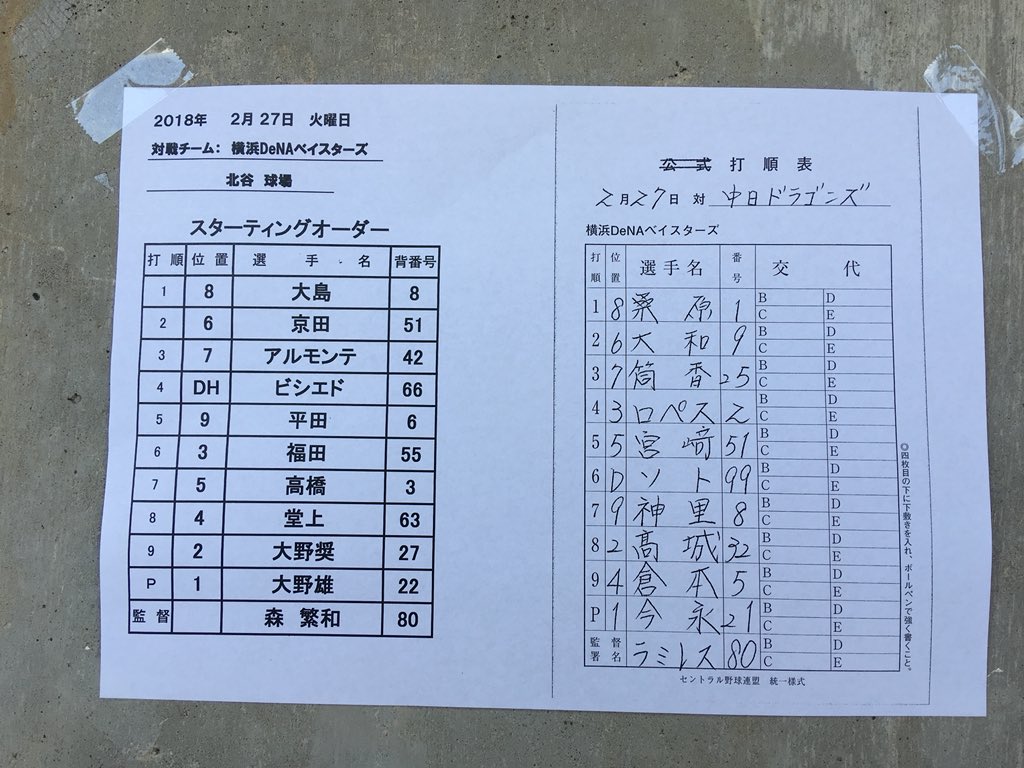 2018年 2月 27日 火曜日
対戦チーム: 横浜DeNAベイスターズ
北谷 球場
スターティングオーダー
打 順 位置 選 手 名 背番号
1 8 大島 8
2 6 京田 51
3 7 アルモンテ 42
4 DH ビシエド 66
5 9 平田 6
6 3 福田 55
7 5 高橋 3
8 4 堂上 63
9 2 大野奨 27
P 1 大野雄 22
監督 森 繁和 80
公式 打順表
2月27日 対 中日ドラゴンズ
横浜DeNAベイスターズ
打順 位置 選手名 番号 交 代
1 8 桑原 1 B D
C E
2 6 大和 9 B D
C E
3 7 筒香 25 B D
C E
4 3 ロペス 2 B D
C E
5 5 宮﨑 51 B D
C E
6 D ソト 99 B D
C E
7 9 神里 8 B D
C E
8 2 髙城 32 B D
C E
9 4 倉本 5 B D
C E
P 1 今永 21 B D
C E
監督署名 ラミレス 80 B D
C E
セントラル野球連盟 統一様式
◎四枚目の下に下敷きを入れ、ボールペンで強く書くこと。